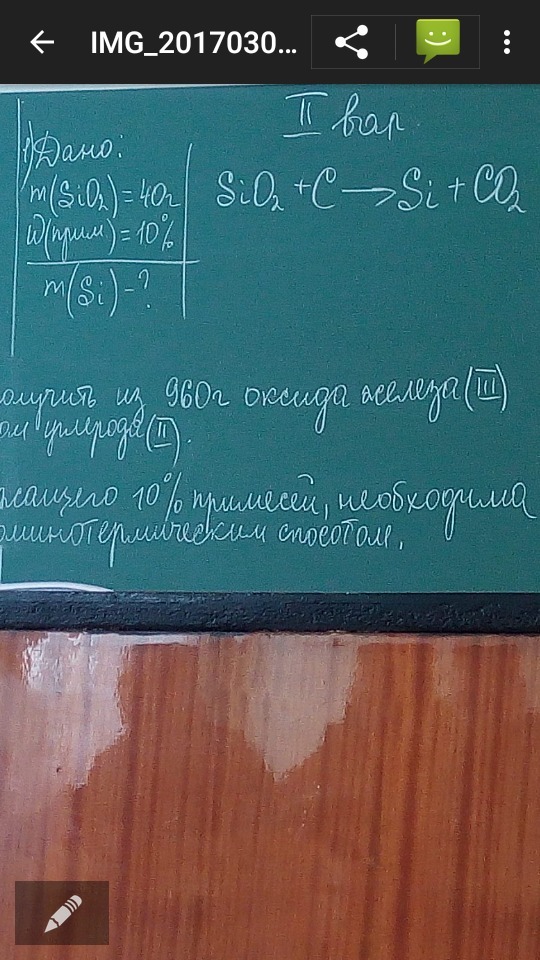 IMG_2017030...
II вар.
1) Дано:
m(SiO₂) = 40г
W(прим) = 10%
m(Si) - ?
SiO₂ + C → Si + CO₂
олучить из 960г оксида железа (III)
ом углерода (II).
жащего 10% примесей, необходима
оминотермическим способом.